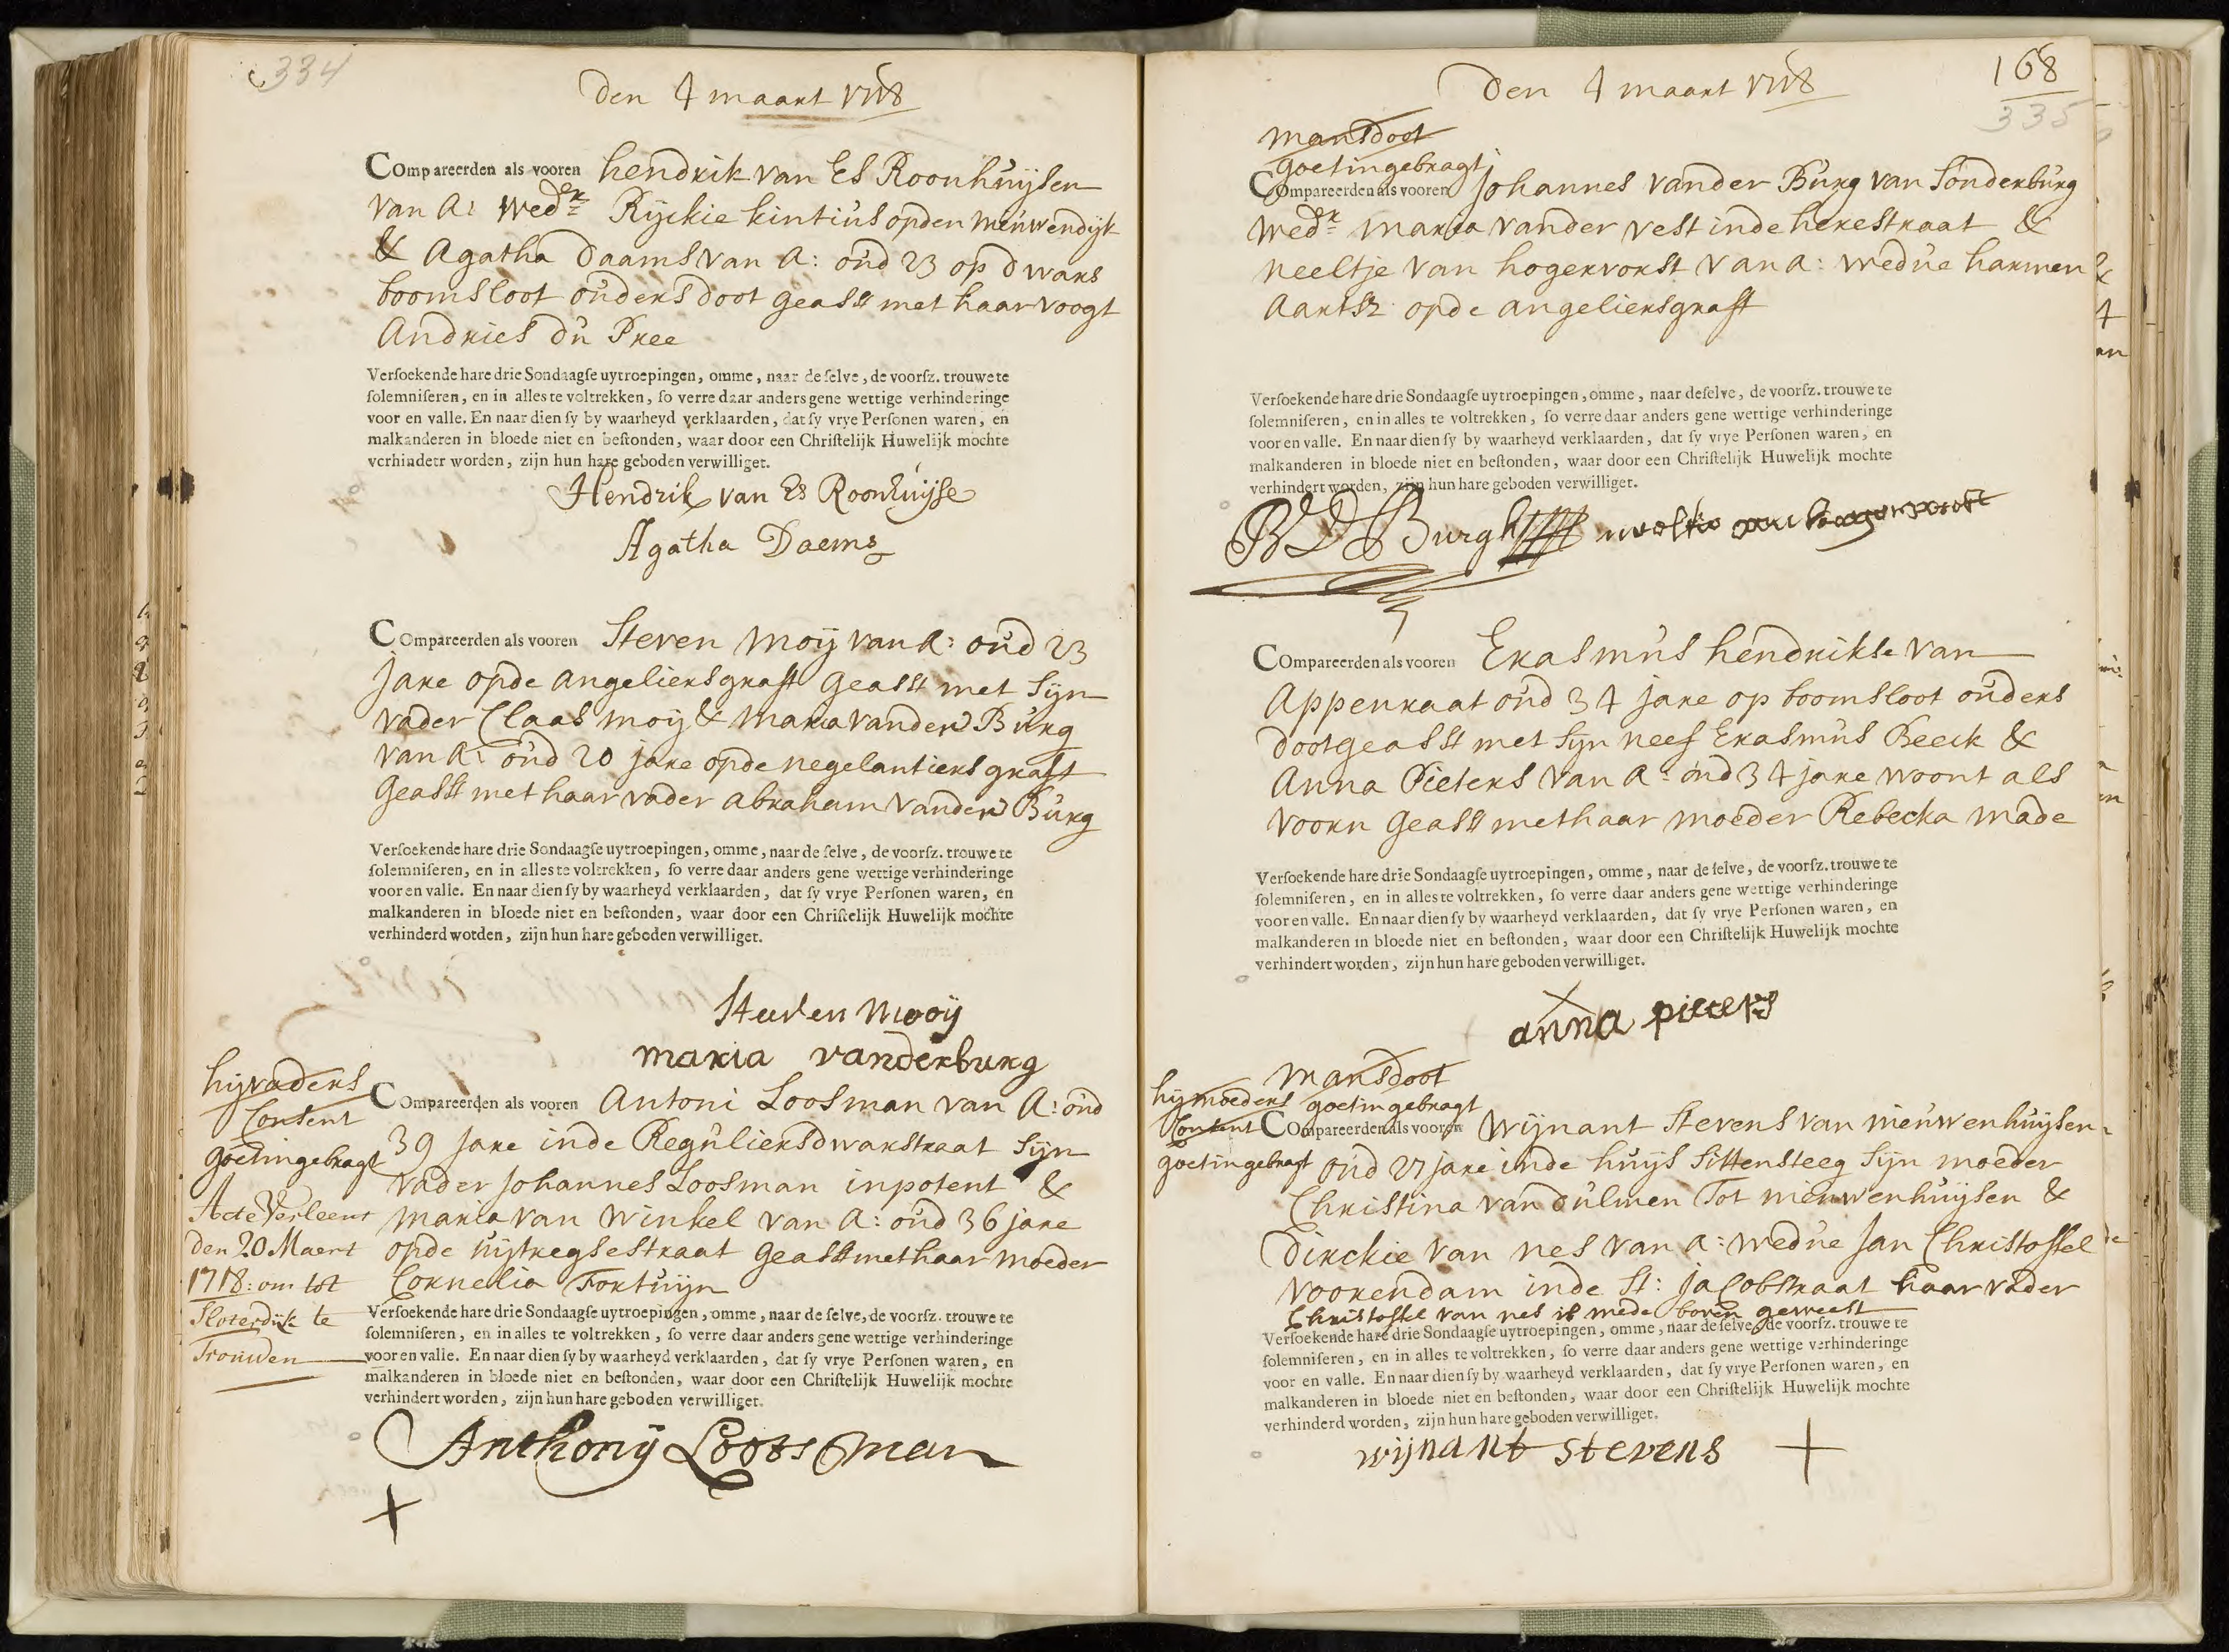 334
Den 4 maart 1718
Compareerden als vooren hendrik van Es Roonhuijsen
van A: wedr Ryckie kintius op den nieuwendijk
& Agatha Daams van A: oud 23 op dwars
boomsloot ouders doot geasst met haar voogt
Andries du Pree
Versoekende hare drie Sondaagse uytroepingen, omme, naar de selve, de voorsz. trouwe te
solemniseren, en in alles te voltrekken, so verre daar anders gene wettige verhinderinge
voor en valle. En naar dien sy by waarheyd verklaarden, dat sy vrye Persone waren, en
malkanderen in bloede niet en bestonden, waar door een Christelijk Huwelijk mochte
verhindert worden, zijn hun hare geboden verwilliget.
Hendrik van Es Roonhuijse
Agatha Daems
Compareerden als vooren Steven moij van A: oud 23
Jare opde angeliersgraft geasst met Sijn
vader Claas moij & maria vander Burg
van A: oud 20 jare opde negelantiers graft
geasst met haar vader abraham vander Burg
Versoekende hare drie Sondaagse uytroepingen, omme, naar de selve, de voorsz. trouwe te
solemniseren, en in alles te voltrekken, so verre daar anders gene wettige verhinderinge
voor en valle. En naar dien sy by waarheyd verklaarden, dat sy vrye Personen waren, en
malkanderen in bloede niet en bestonden, waar door een Christelijk Huwelijk mochte
verhinderd worden, zijn hun hare geboden verwilliget.
Steeven Mooij
maria vanderburg
hij vaders
Consent
goet ingebragt
Acte Verleent
den 20 Maert
1718: om tot
Sloterdijk te
Trouwen
Compareerden als vooren Antoni Loosman van A: oud
39 Jare inde Reguliersdwarstraat Sijn
vader Johannes Loosman inpotent &
maria van Winkel van A: oud 36 jare
opde uijtregsestraat geasst met haar moeder
Cornelia Fortuijn
Versoekende hare drie Sondaagse uytroepingen, omme, naar de selve, de voorsz. trouwe te
solemniseren, en in alles te voltrekken, so verre daar anders gene wettige verhinderinge
voor en valle. En naar dien sy by waarheyd verklaarden, dat sy vrye Personen waren, en
malkanderen in bloede niet en bestonden, waar door een Christelijk Huwelijk mochte
verhindert worden, zijn hun hare geboden verwilliget.
Anthonij Lootsman
+
Den 4 maart 1718
168
335
mansdoot
goet ingebragt
Compareerden als vooren Johannes vander Burg van Sonderburg
wedr maria vander vest inde herestraat &
neeltje van hogervorst van A: wedue harmen
aartsz opde angeliersgraft
Versoekende hare drie Sondaagse uytroepingen, omme, naar deselve, de voorsz. trouwe te
solemniseren, en in alles te voltrekken, so verre daar anders gene wettige verhinderinge
voor en valle. En naar dien sy by waarheyd verklaarden, dat sy vrye Personen waren, en
malkanderen in bloede niet en bestonden, waar door een Christelijk Huwelijk mochte
verhindert worden, zijn hun hare geboden verwilliget.
Burgh
Compareerden als vooren Erasmus hendrikse van
Appenraat oud 34 jare op boomsloot ouders
doot geasst met Sijn neef Erasmus Beeck &
Anna Pieters van A: oud 34 jare woont als
voorn geasst met haar moeder Rebecka made
Versoekende hare drie Sondaagse uytroepingen, omme, naar de selve, de voorsz. trouwe te
solemniseren, en in alles te voltrekken, so verre daar anders gene wettige verhinderinge
voor en valle. En naar dien sy by waarheyd verklaarden, dat sy vrye Personen waren, en
malkanderen in bloede niet en bestonden, waar door een Christelijk Huwelijk mochte
verhindert worden, zijn hun hare geboden verwilliget.
+
anna pieters
mansdoot
goet ingebragt
hij moeders
Consent
goet ingebragt
Compareerden als vooren Wijnant Stevens van nieuwenhuijsen
oud 27 jare inde huijs Sittensteeg Sijn moeder
Christina van Dulmen Tot nieuwenhuijsen &
Dirckie van nes van A: wedue Jan Christoffel
voorendam inde St: Jacobstraat haar vader
Christoffel van nes is mede boven geweest
Versoekende hare drie Sondaagse uytroepingen, omme, naar de selve, de voorsz. trouwe te
solemniseren, en in alles te voltrekken, so verre daar anders gene wettige verhinderinge
voor en valle. En naar dien sy by waarheyd verklaarden, dat sy vrye Personen waren, en
malkanderen in bloede niet en bestonden, waar door een Christelijk Huwelijk mochte
verhinderd worden, zijn hun hare geboden verwilliget.
wijnant stevens +